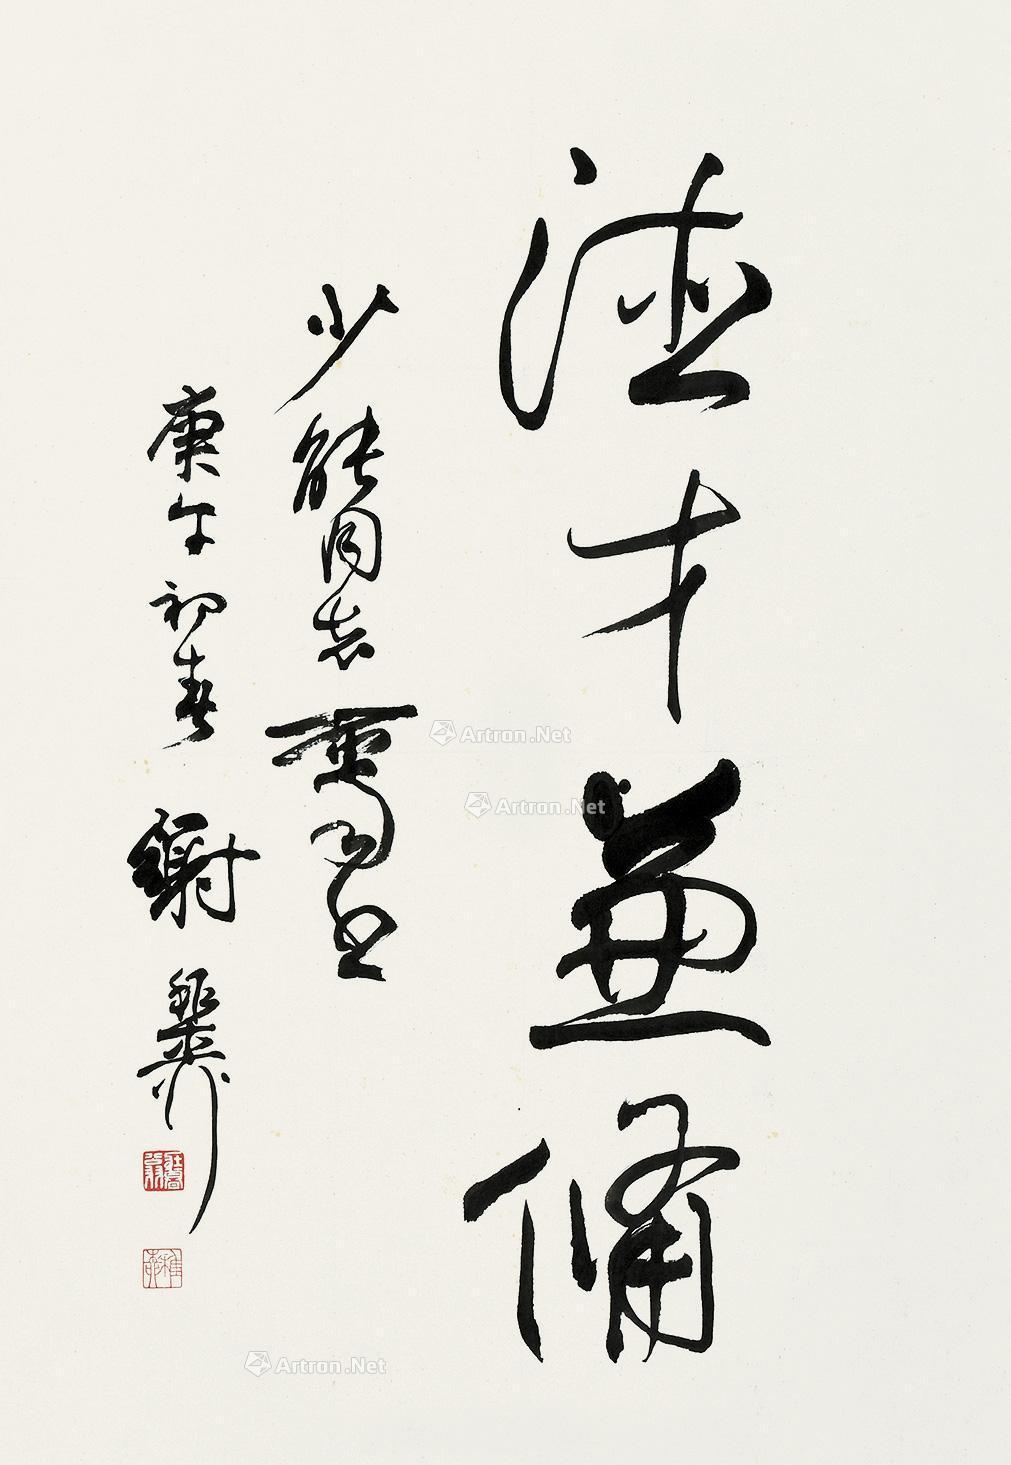 德才兼备
少能同志
庚午初春 谢稚柳
Artron.Net
Artron.Net
Artron.Net